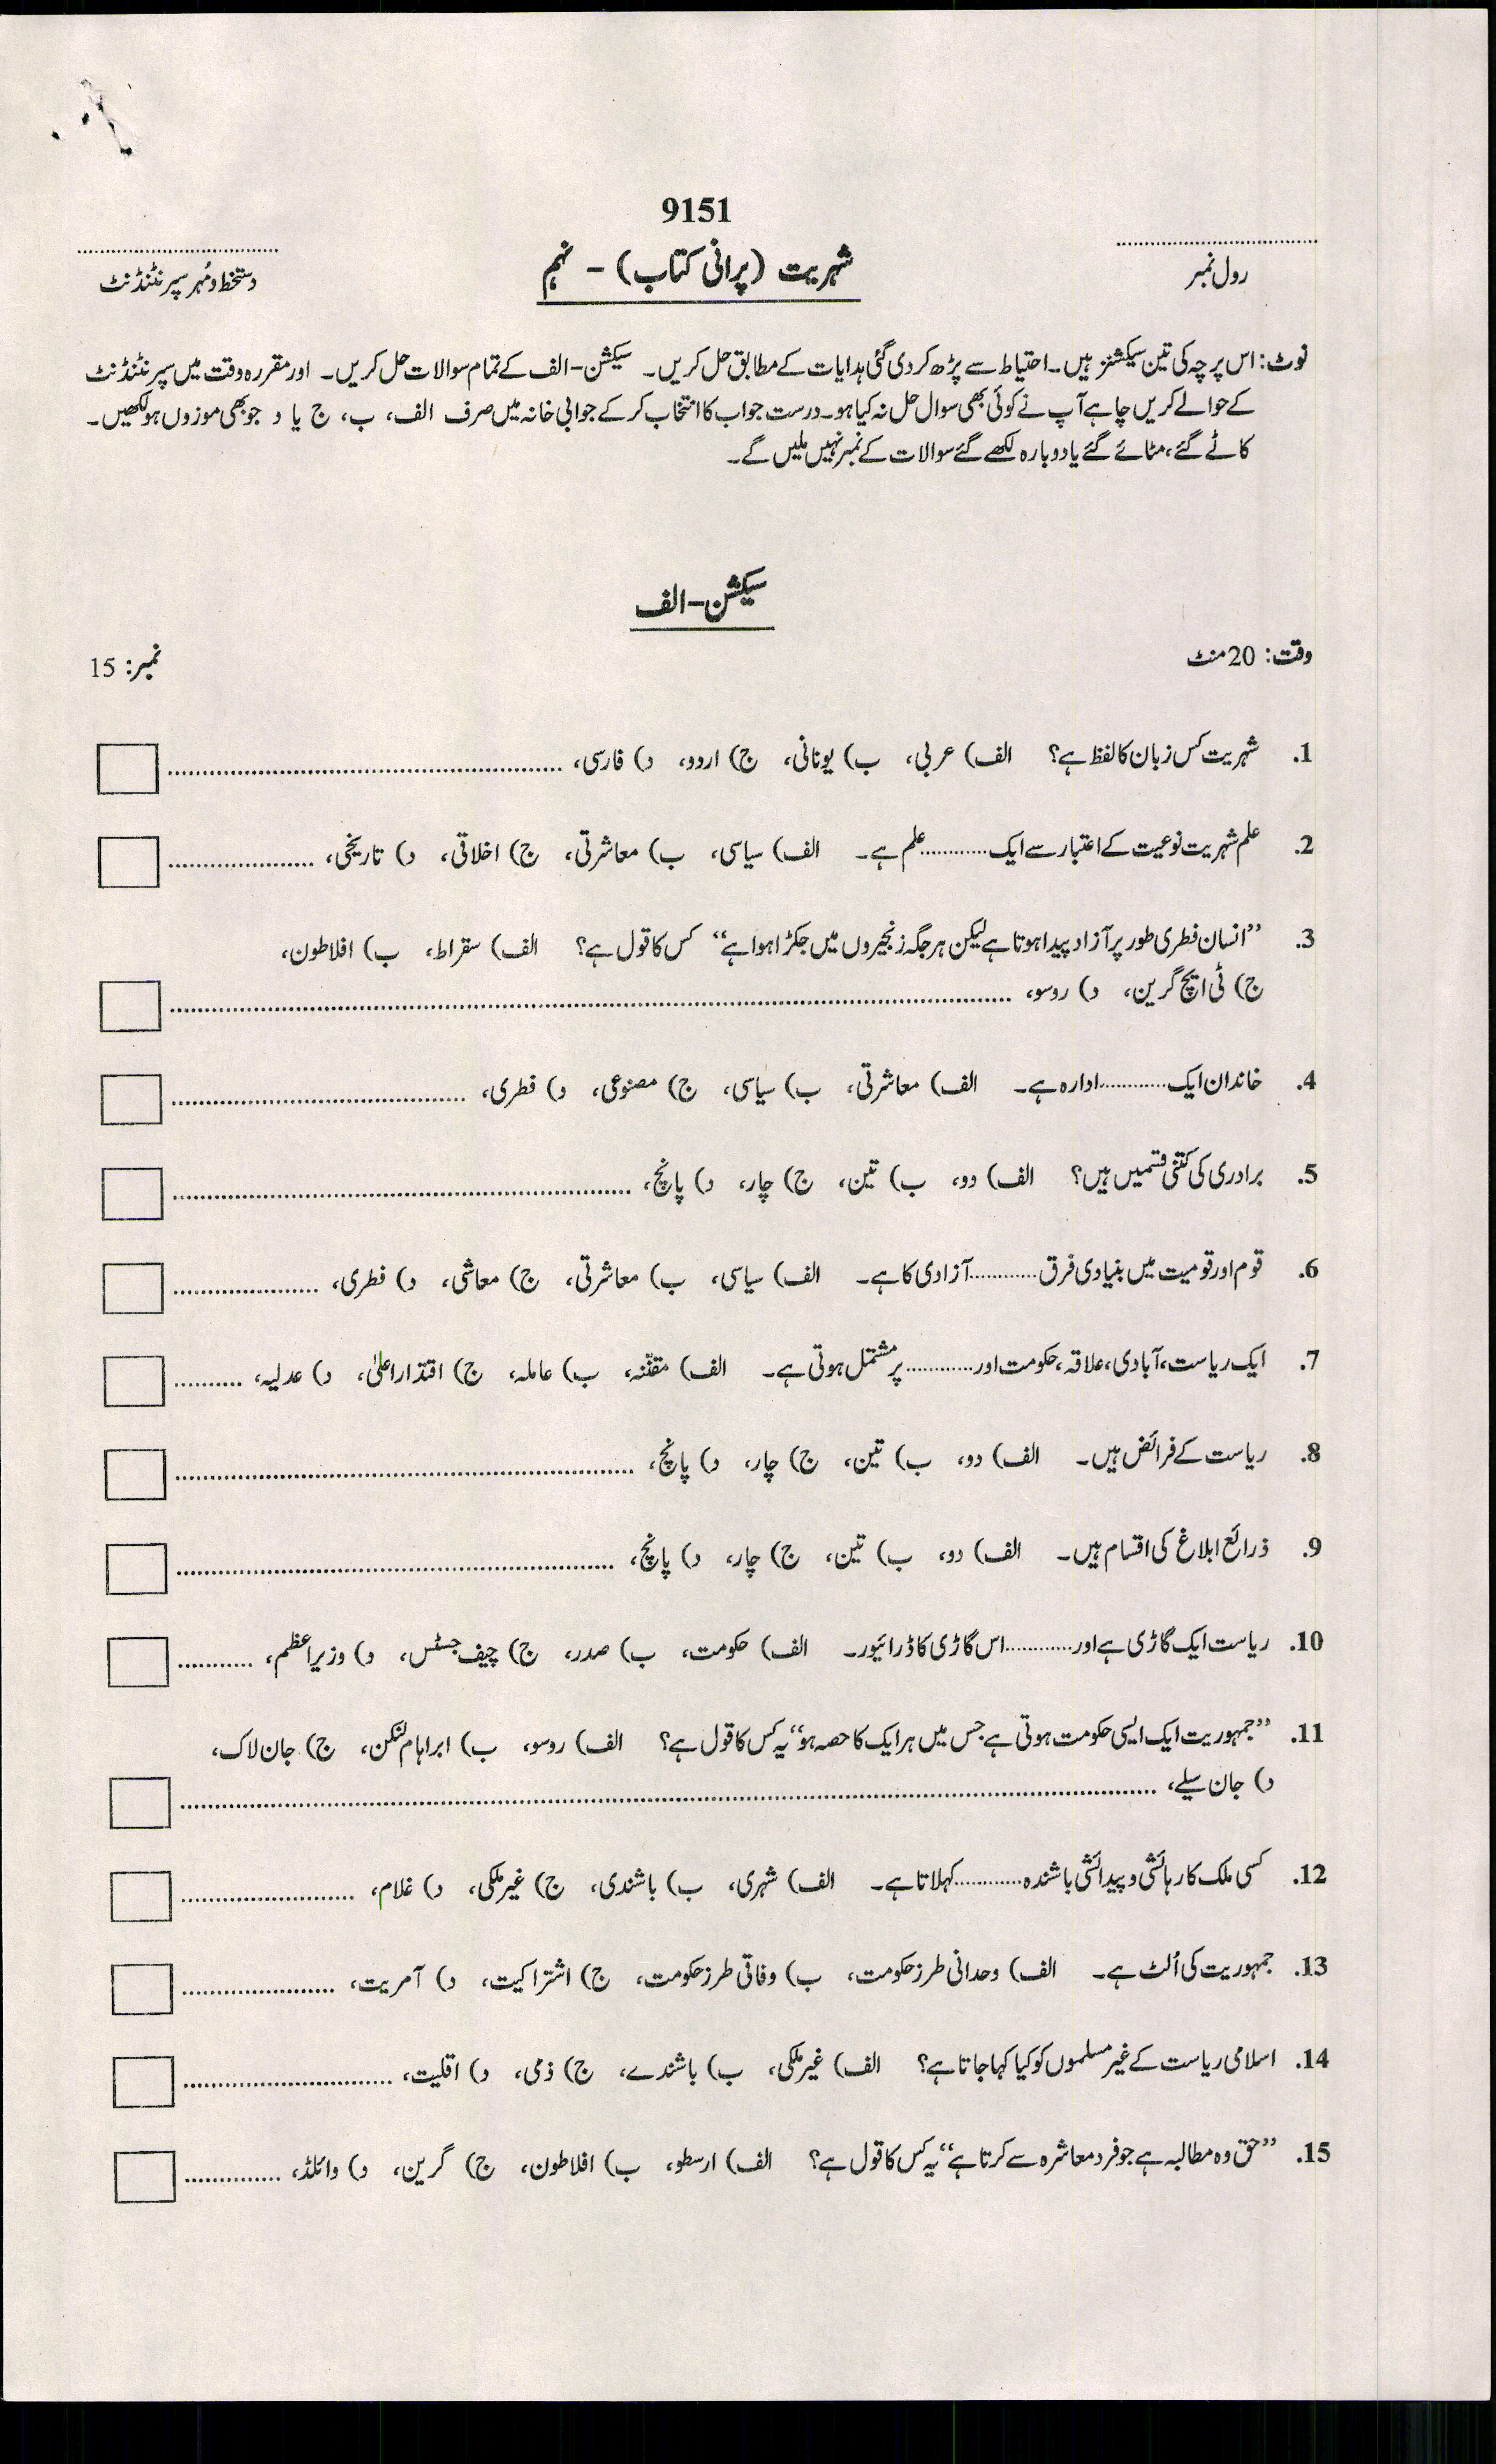 9151
رول نمبر
شہریت (پرانی کتاب) – نہم
دستخط و مُہر سپرنٹنڈنٹ
نوٹ: اس پرچہ کی تین سیکشنز ہیں۔ احتیاط سے پڑھ کر دی گئی ہدایات کے مطابق حل کریں۔ سیکشن–الف کے تمام سوالات حل کریں۔ اور مقررہ وقت میں سپرنٹنڈنٹ
کے حوالے کریں چاہے آپ نے کوئی بھی سوال حل نہ کیا ہو۔ درست جواب کا انتخاب کر کے جوابی خانہ میں صرف الف، ب، ج یا د جو بھی موزوں ہو لکھیں۔
کاٹے گئے، مٹائے گئے یا دوبارہ لکھے گئے سوالات کے نمبر نہیں ملیں گے۔
سیکشن–الف
وقت: 20 منٹ
نمبر: 15
1. شہریت کس زبان کا لفظ ہے؟ الف) عربی، ب) یونانی، ج) اردو، د) فارسی، ............
2. علم شہریت نوعیت کے اعتبار سے ایک ............ علم ہے۔ الف) سیاسی، ب) معاشرتی، ج) اخلاقی، د) تاریخی، ............
3. ’’انسان فطری طور پر آزاد پیدا ہوتا ہے لیکن ہر جگہ زنجیروں میں جکڑا ہوا ہے‘‘ کس کا قول ہے؟ الف) سقراط، ب) افلاطون،
ج) ٹی ایچ گرین، د) روسو، ............
4. خاندان ایک ............ ادارہ ہے۔ الف) معاشرتی، ب) سیاسی، ج) مصنوعی، د) فطری، ............
5. برادری کی کتنی قسمیں ہیں؟ الف) دو، ب) تین، ج) چار، د) پانچ، ............
6. قوم اور قومیت میں بنیادی فرق ............ آزادی کا ہے۔ الف) سیاسی، ب) معاشرتی، ج) معاشی، د) فطری، ............
7. ایک ریاست، آبادی، علاقہ، حکومت اور ............ پر مشتمل ہوتی ہے۔ الف) مقنّنہ، ب) عاملہ، ج) اقتدار اعلیٰ، د) عدلیہ، ..........
8. ریاست کے فرائض ہیں۔ الف) دو، ب) تین، ج) چار، د) پانچ، ............
9. ذرائع ابلاغ کی اقسام ہیں۔ الف) دو، ب) تین، ج) چار، د) پانچ، ............
10. ریاست ایک گاڑی ہے اور ............ اس گاڑی کا ڈرائیور۔ الف) حکومت، ب) صدر، ج) چیف جسٹس، د) وزیراعظم، ...........
11. ’’جمہوریت ایک ایسی حکومت ہوتی ہے جس میں ہر ایک کا حصہ ہو‘‘ یہ کس کا قول ہے؟ الف) روسو، ب) ابراہام لنکن، ج) جان لاک،
د) جان سیلے، ............
12. کسی ملک کا رہائشی و پیدائشی باشندہ ............ کہلاتا ہے۔ الف) شہری، ب) باشندی، ج) غیر ملکی، د) غلام، ............
13. جمہوریت کی اُلٹ ہے۔ الف) وحدانی طرز حکومت، ب) وفاقی طرز حکومت، ج) اشتراکیت، د) آمریت، ............
14. اسلامی ریاست کے غیر مسلموں کو کیا کہا جاتا ہے؟ الف) غیر ملکی، ب) باشندے، ج) ذمی، د) اقلیت، ............
15. ’’حق وہ مطالبہ ہے جو فرد معاشرہ سے کرتا ہے‘‘ یہ کس کا قول ہے؟ الف) ارسطو، ب) افلاطون، ج) گرین، د) وائلڈ، ............